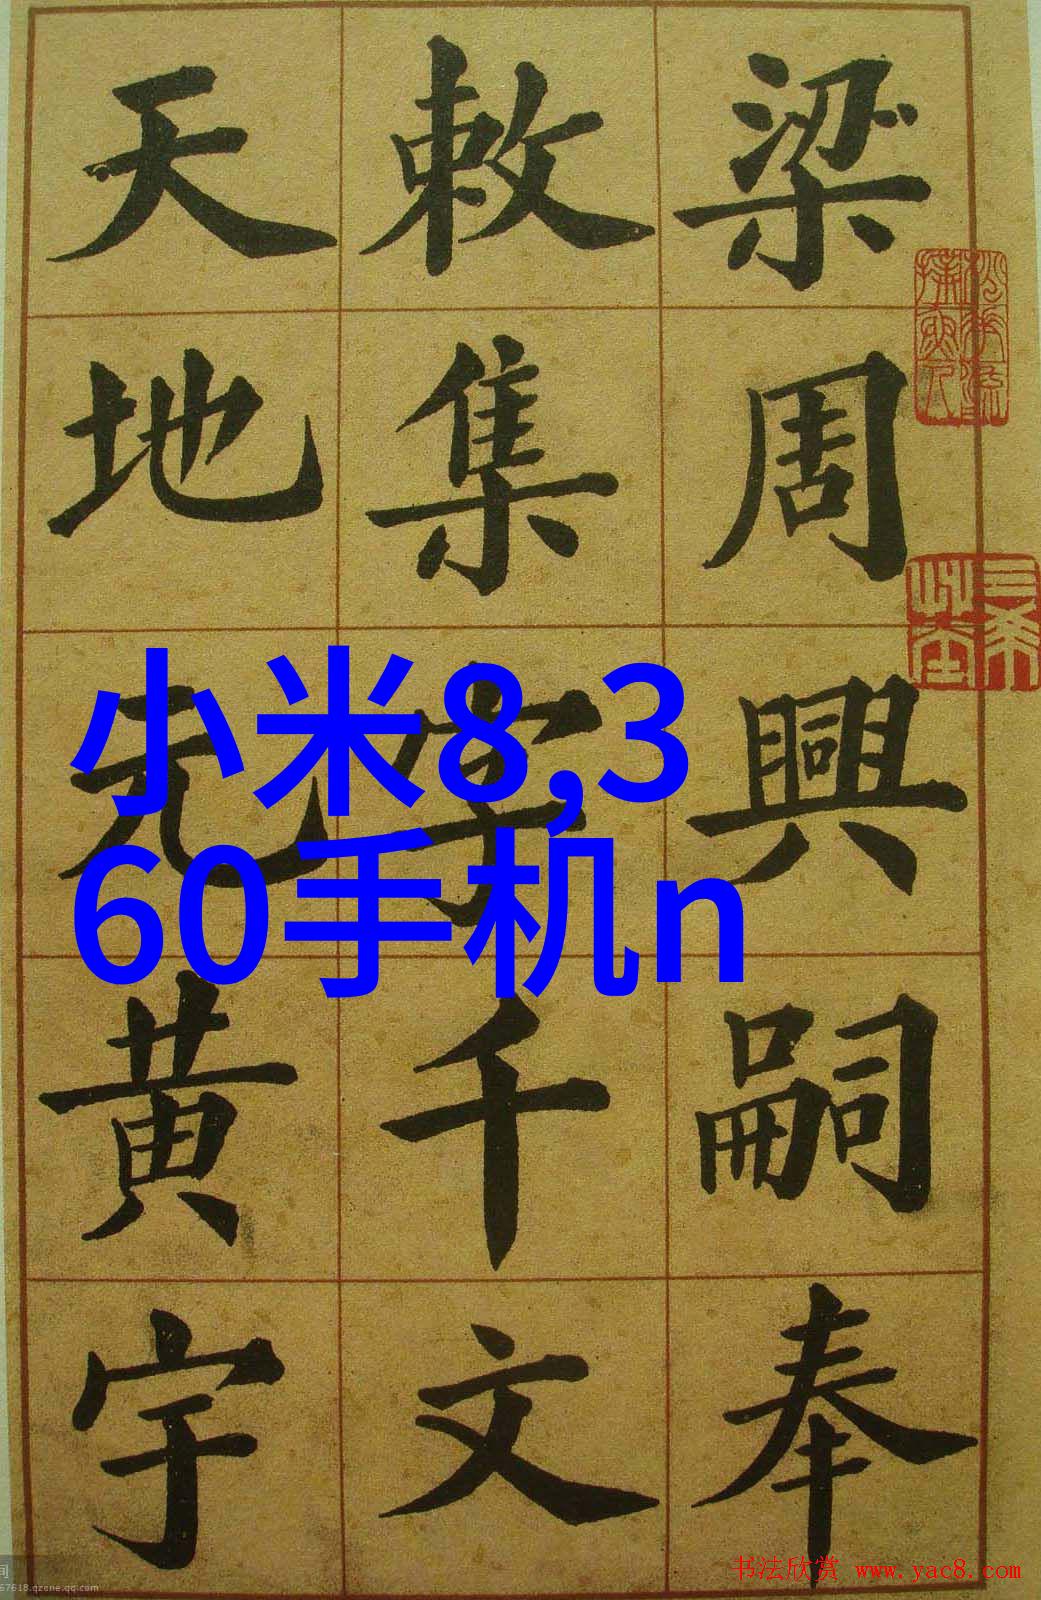 梁周興嗣奉
敕集字千文
天地元黃宇
小米8,3
60手机n
三希堂
书法欣赏 www.yac8.com
间
67618.qzone.qq.com